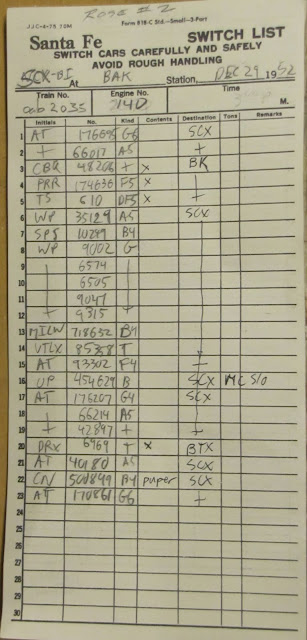 ROSE # 2
JJC-4-78 10M Form 818-C Std.-Small-3-Part
Santa Fe SWITCH LIST
SWITCH CARS CAREFULLY AND SAFELY
AVOID ROUGH HANDLING
At BAK Station, DEC 29 19
Train No. Engine No. Time
cab 2035 2140 M.
Initials No. Kind Contents Destination Tons Remarks
1 AT G6 SCX
2 + 66017 A5 +
3 CBQ 48206 + x BK
4 PRR 174636 F5 x
5 TS 610 DF5 x +
6 WP 35129 A5 SCX
7 SPS 10289 B4
8 WP 9002 G
9 6574
10 6505
11 9047
12 + 9315 +
13 MILW 718652 B4
14 VTLX 85358 T
15 AT 93302 F4 +
16 UP 454629 B SCX MC S/O
17 AT 176207 G4 SCX
18 66214 A5
19 + 42897 + +
20 DRX 6969 T x BTX
21 AT 40180 A5 SCX
22 CN 501849 B4 paper SCX
23 AT 170861 G6 +
24
25
26
27
28
29
30